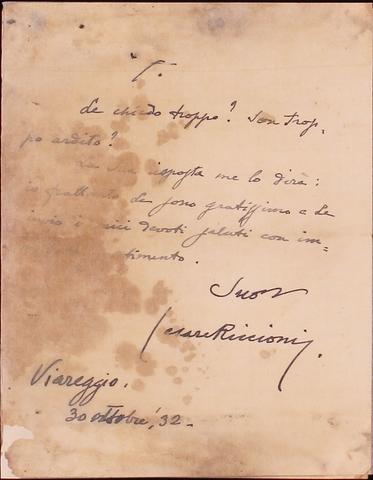 Le chiedo troppo? Son trop-
po ardito?
La Sua risposta me lo dirà:
io frattanto Le sono gratissimo e Le
invio i miei devoti saluti con im-
timento.
Suo
Cesare Riccioni.
Viareggio.
30 ottobre '32-